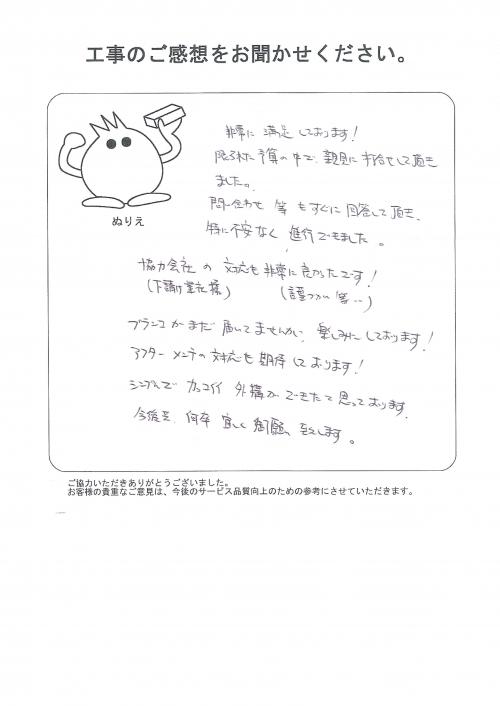 工事のご感想をお聞かせください。
非常に満足しております!
限られた予算の中で、親身に打合せして頂き
ました。
問い合わせ 等 もすぐに回答して頂き、
特に不安なく 進行できました。
ぬりえ
協力会社 の 対応も 非常に良かったです!
(下請け業社様) (言葉づかい 等‥)
ブランコがまだ届いてませんが、楽しみにしております!
アフターメンテの対応も期待しております!
シンプルで カッコイイ 外構ができたと思っております。
今後共、何卒 宜しく御願い致します。
ご協力いただきありがとうございました。
お客様の貴重なご意見は、今後のサービス品質向上のための参考にさせていただきます。